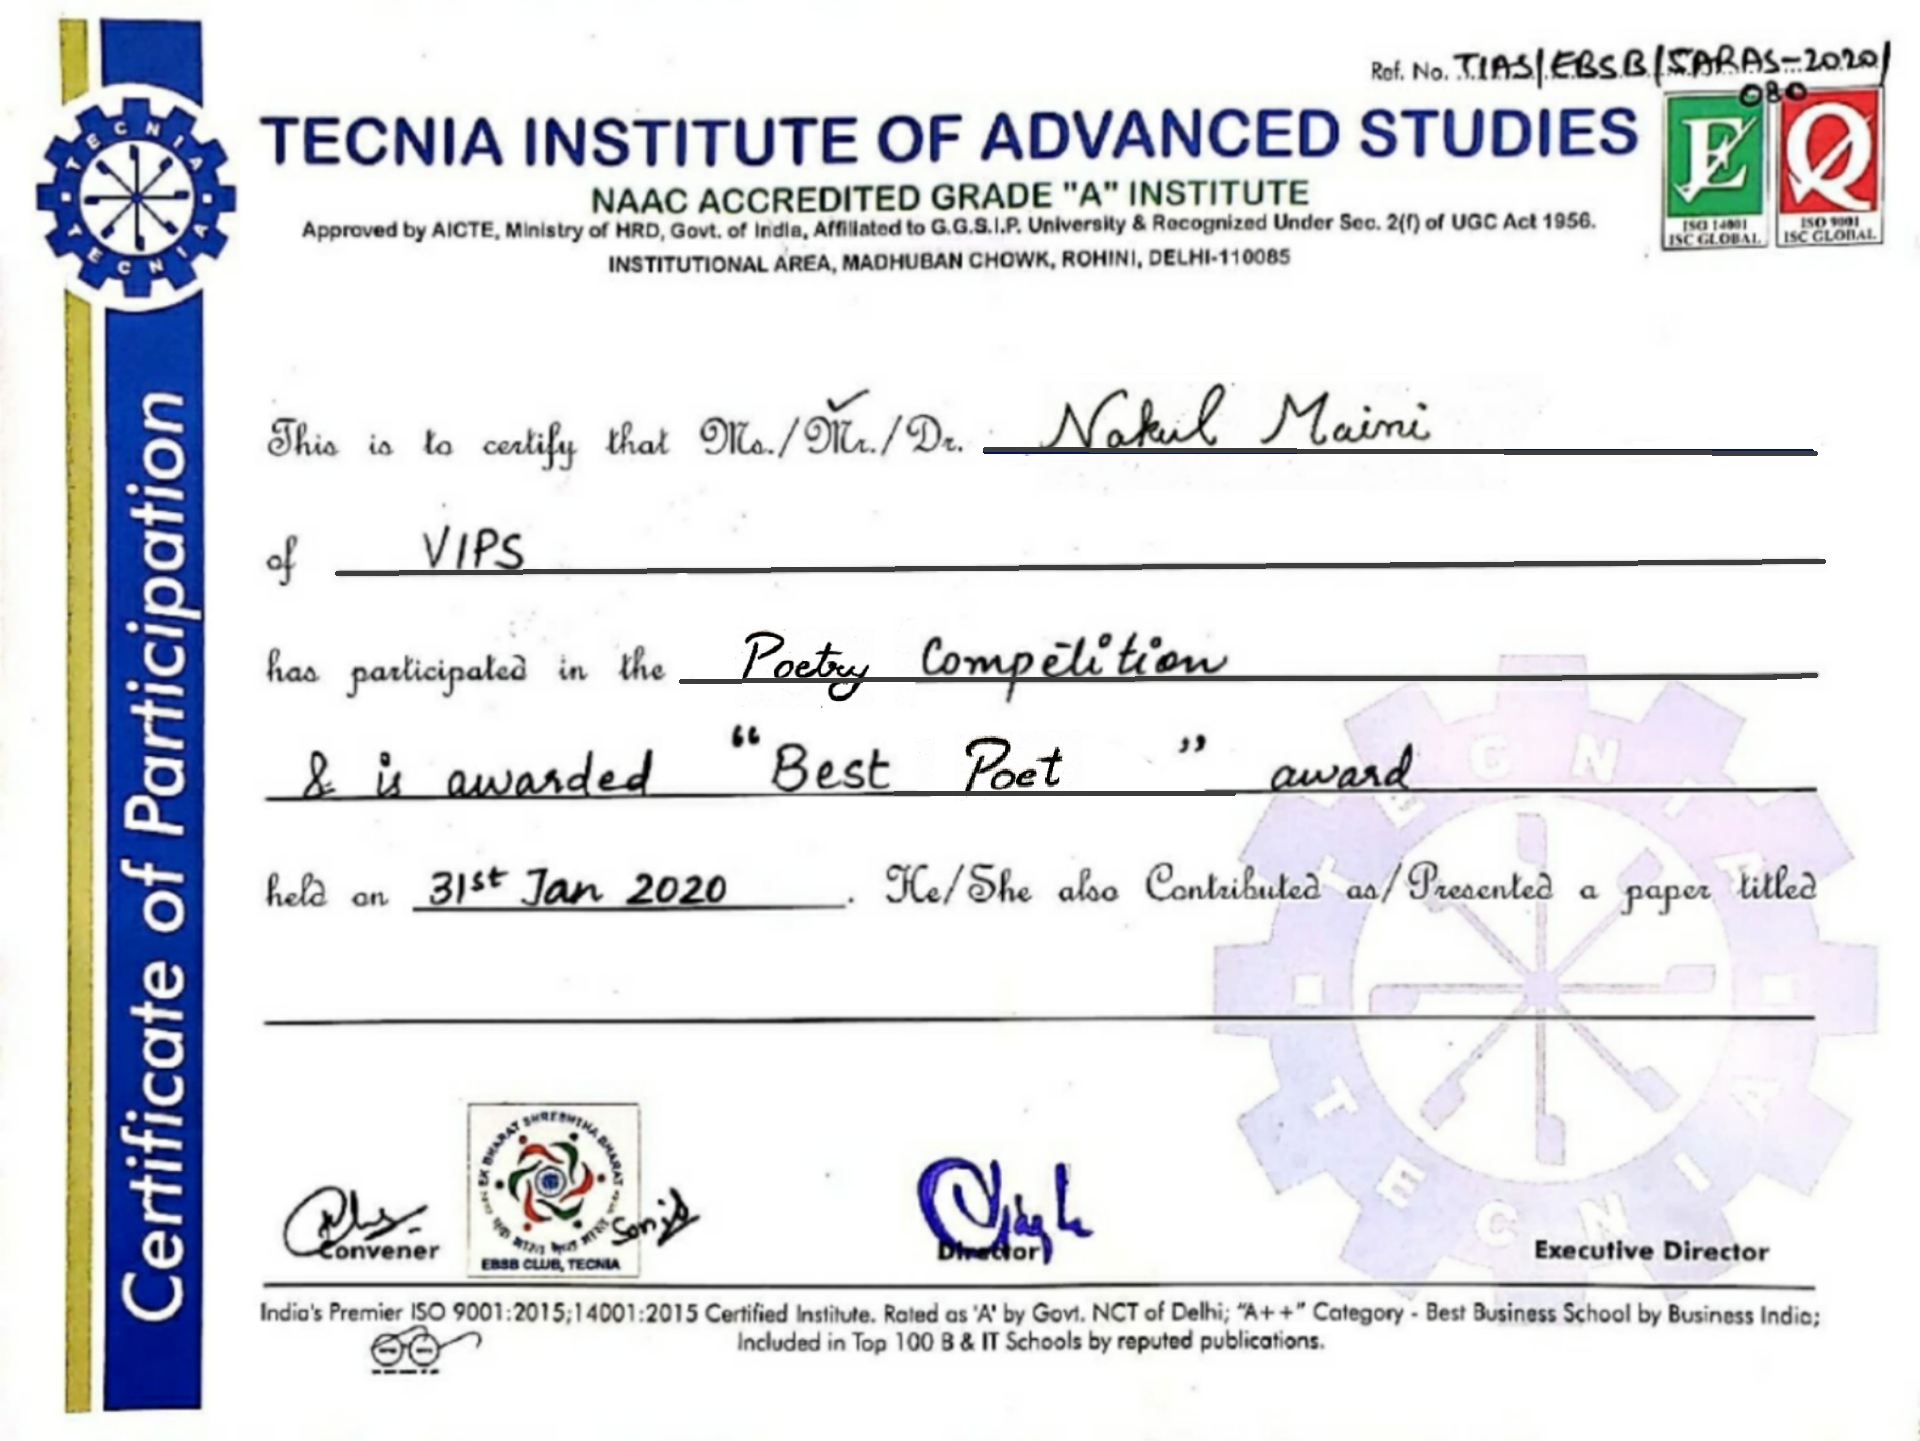 Ref. No. TIAS/EBSB/SARAS-2020/
080
TECNIA INSTITUTE OF ADVANCED STUDIES
NAAC ACCREDITED GRADE "A" INSTITUTE
Approved by AICTE, Ministry of HRD, Govt. of India, Affiliated to G.G.S.I.P. University & Recognized Under Sec. 2(f) of UGC Act 1956.
INSTITUTIONAL AREA, MADHUBAN CHOWK, ROHINI, DELHI-110085
TECNIA
TECNIA
ISO 14001
ISC GLOBAL
ISO 9001
ISC GLOBAL
Certificate of Participation
This is to certify that Ms./Mr./Dr. Nakul Maini
of VIPS
has participated in the Poetry Competition
& is awarded "Best Poet" award
held on 31st Jan 2020. He/She also Contributed as/Presented a paper titled
TECNIA
TECNIA
EK BHARAT SHRESHTHA BHARAT
EBSB CLUB, TECNIA
Convener
Director
Executive Director
India's Premier ISO 9001:2015;14001:2015 Certified Institute. Rated as 'A' by Govt. NCT of Delhi; "A++" Category - Best Business School by Business India;
Included in Top 100 B & IT Schools by reputed publications.